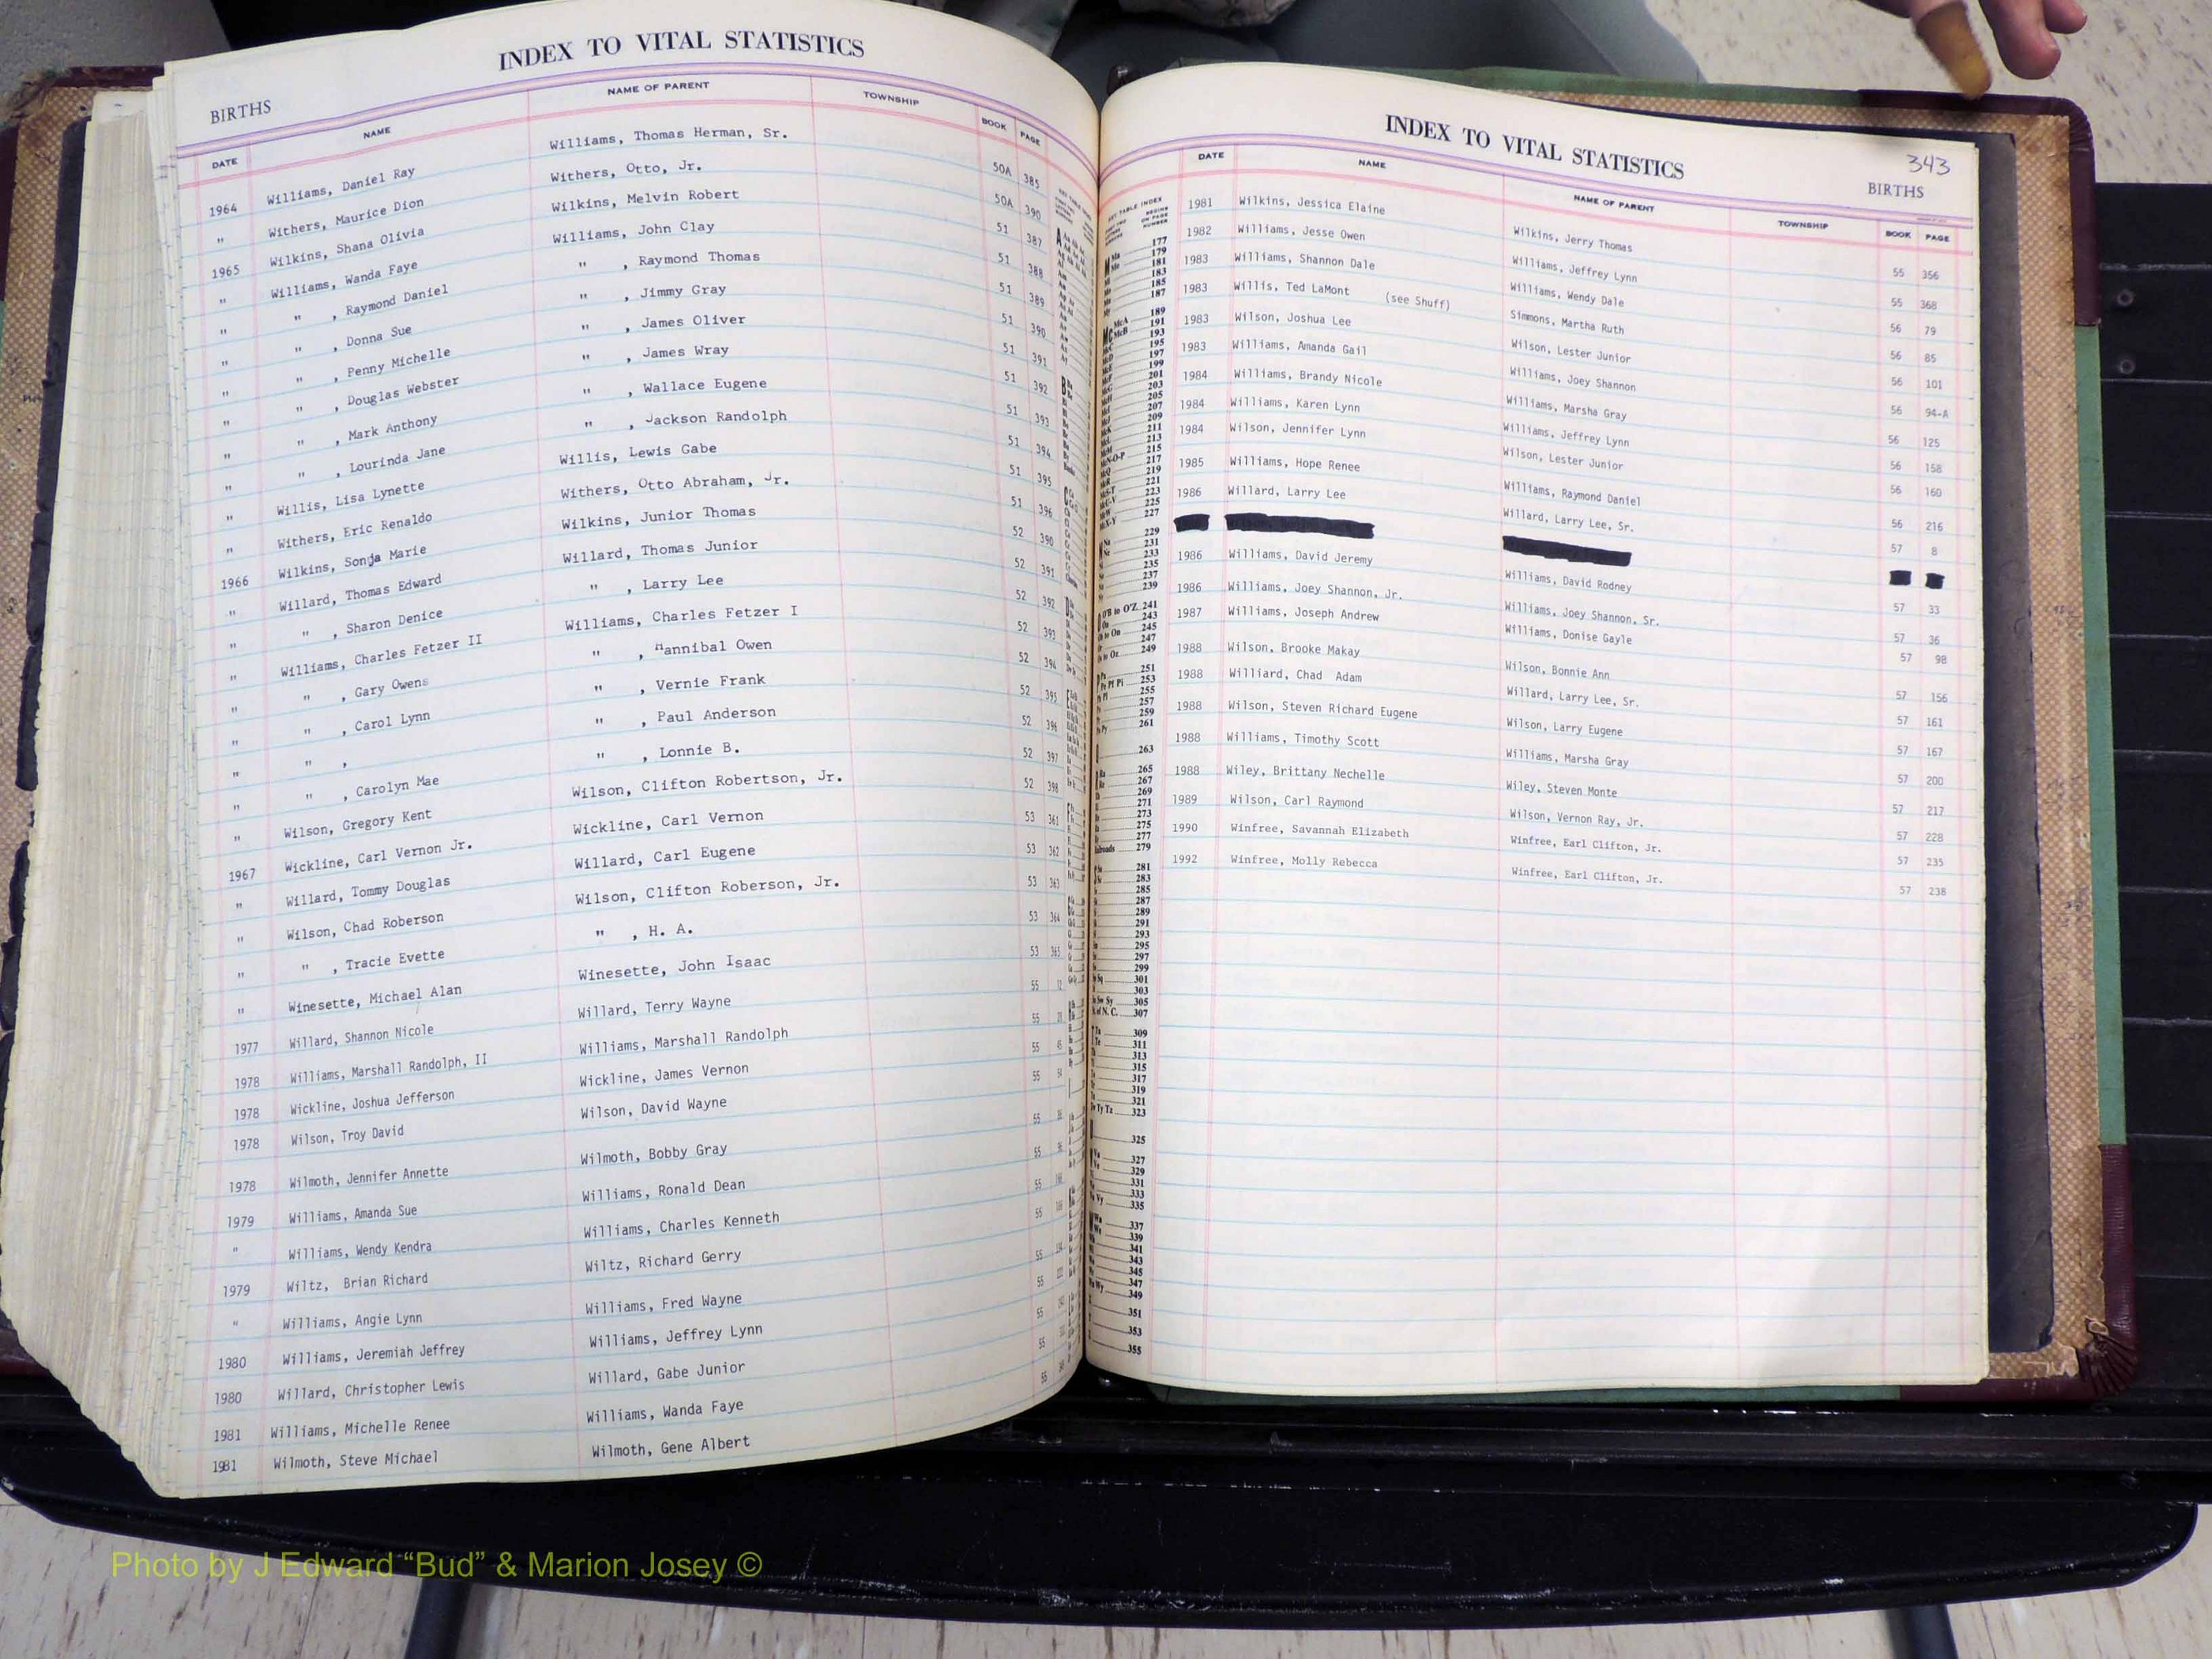 INDEX TO VITAL STATISTICS
BIRTHS
DATE NAME NAME OF PARENT TOWNSHIP BOOK PAGE
1964 Williams, Daniel Ray Williams, Thomas Herman, Sr. 50A 385
" Withers, Maurice Dion Withers, Otto, Jr. 50A 390
1965 Wilkins, Shana Olivia Wilkins, Melvin Robert 51 387
" Williams, Wanda Faye Williams, John Clay 51 388
" " , Raymond Daniel " , Raymond Thomas 51 389
" " , Donna Sue " , Jimmy Gray 51 390
" " , Penny Michelle " , James Oliver 51 391
" " , Douglas Webster " , James Wray 51 392
" " , Mark Anthony " , Wallace Eugene 51 393
" " , Lourinda Jane " , Jackson Randolph 51 394
" Willis, Lisa Lynette Willis, Lewis Gabe 51 395
" Withers, Eric Renaldo Withers, Otto Abraham, Jr. 51 396
1966 Wilkins, Sonja Marie Wilkins, Junior Thomas 52 390
" Willard, Thomas Edward Willard, Thomas Junior 52 391
" " , Sharon Denice " , Larry Lee 52 392
" Williams, Charles Fetzer II Williams, Charles Fetzer I 52 393
" " , Gary Owens " , Hannibal Owen 52 394
" " , Carol Lynn " , Vernie Frank 52 395
" " , " , Paul Anderson 52 396
" " , Carolyn Mae " , Lonnie B. 52 397
" Wilson, Gregory Kent Wilson, Clifton Robertson, Jr. 52 398
1967 Wickline, Carl Vernon Jr. Wickline, Carl Vernon 53 361
" Willard, Tommy Douglas Willard, Carl Eugene 53 362
" Wilson, Chad Roberson Wilson, Clifton Roberson, Jr. 53 363
" " , Tracie Evette " , H. A. 53 364
" Winesette, Michael Alan Winesette, John Isaac 53 365
1977 Willard, Shannon Nicole Willard, Terry Wayne 55 12
1978 Williams, Marshall Randolph, II Williams, Marshall Randolph 55
1978 Wickline, Joshua Jefferson Wickline, James Vernon 55
1978 Wilson, Troy David Wilson, David Wayne 55
1978 Wilmoth, Jennifer Annette Wilmoth, Bobby Gray 55
1979 Williams, Amanda Sue Williams, Ronald Dean 55
" Williams, Wendy Kendra Williams, Charles Kenneth 55
1979 Wiltz, Brian Richard Wiltz, Richard Gerry 55
" Williams, Angie Lynn Williams, Fred Wayne 55
1980 Williams, Jeremiah Jeffrey Williams, Jeffrey Lynn 55
1980 Willard, Christopher Lewis Willard, Gabe Junior 55
1981 Williams, Michelle Renee Williams, Wanda Faye 55
1981 Wilmoth, Steve Michael Wilmoth, Gene Albert
INDEX TO VITAL STATISTICS
343
BIRTHS
DATE NAME NAME OF PARENT TOWNSHIP BOOK PAGE
1981 Wilkins, Jessica Elaine Wilkins, Jerry Thomas 55 356
1982 Williams, Jesse Owen Williams, Jeffrey Lynn 55 368
1983 Williams, Shannon Dale Williams, Wendy Dale 56 79
1983 Willis, Ted LaMont (see Shuff) Simmons, Martha Ruth 56 85
1983 Wilson, Joshua Lee Wilson, Lester Junior 56 101
1983 Williams, Amanda Gail Williams, Joey Shannon 56 94-A
1984 Williams, Brandy Nicole Williams, Marsha Gray 56 125
1984 Williams, Karen Lynn Williams, Jeffrey Lynn 56 158
1984 Wilson, Jennifer Lynn Wilson, Lester Junior 56 160
1985 Williams, Hope Renee Williams, Raymond Daniel 56 216
1986 Willard, Larry Lee Willard, Larry Lee, Sr. 57 8
1986 Williams, David Jeremy Williams, David Rodney 57 33
1986 Williams, Joey Shannon, Jr. Williams, Joey Shannon, Sr. 57 36
1987 Williams, Joseph Andrew Williams, Donise Gayle 57 98
1988 Wilson, Brooke Makay Wilson, Bonnie Ann 57 156
1988 Williard, Chad Adam Willard, Larry Lee, Sr. 57 161
1988 Wilson, Steven Richard Eugene Wilson, Larry Eugene 57 167
1988 Williams, Timothy Scott Williams, Marsha Gray 57 200
1988 Wiley, Brittany Nechelle Wiley, Steven Monte 57 217
1989 Wilson, Carl Raymond Wilson, Vernon Ray, Jr. 57 228
1990 Winfree, Savannah Elizabeth Winfree, Earl Clifton, Jr. 57 235
1992 Winfree, Molly Rebecca Winfree, Earl Clifton, Jr. 57 238
Photo by J Edward “Bud” & Marion Josey ©